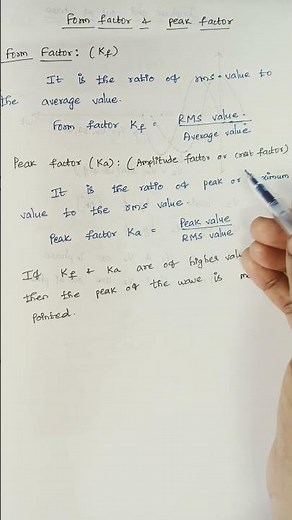 Form factor & peak factor
Form Factor: (Kf)
It is the ratio of rms value to
the average value.
Form factor Kf = RMS value / Average value
Peak factor (Ka): (Amplitude factor or crest factor)
It is the ratio of peak or
value to the rms value.
Peak factor Ka = Peak value / RMS value
If Kf & Ka are of higher
then the peak of the wave is
pointed.